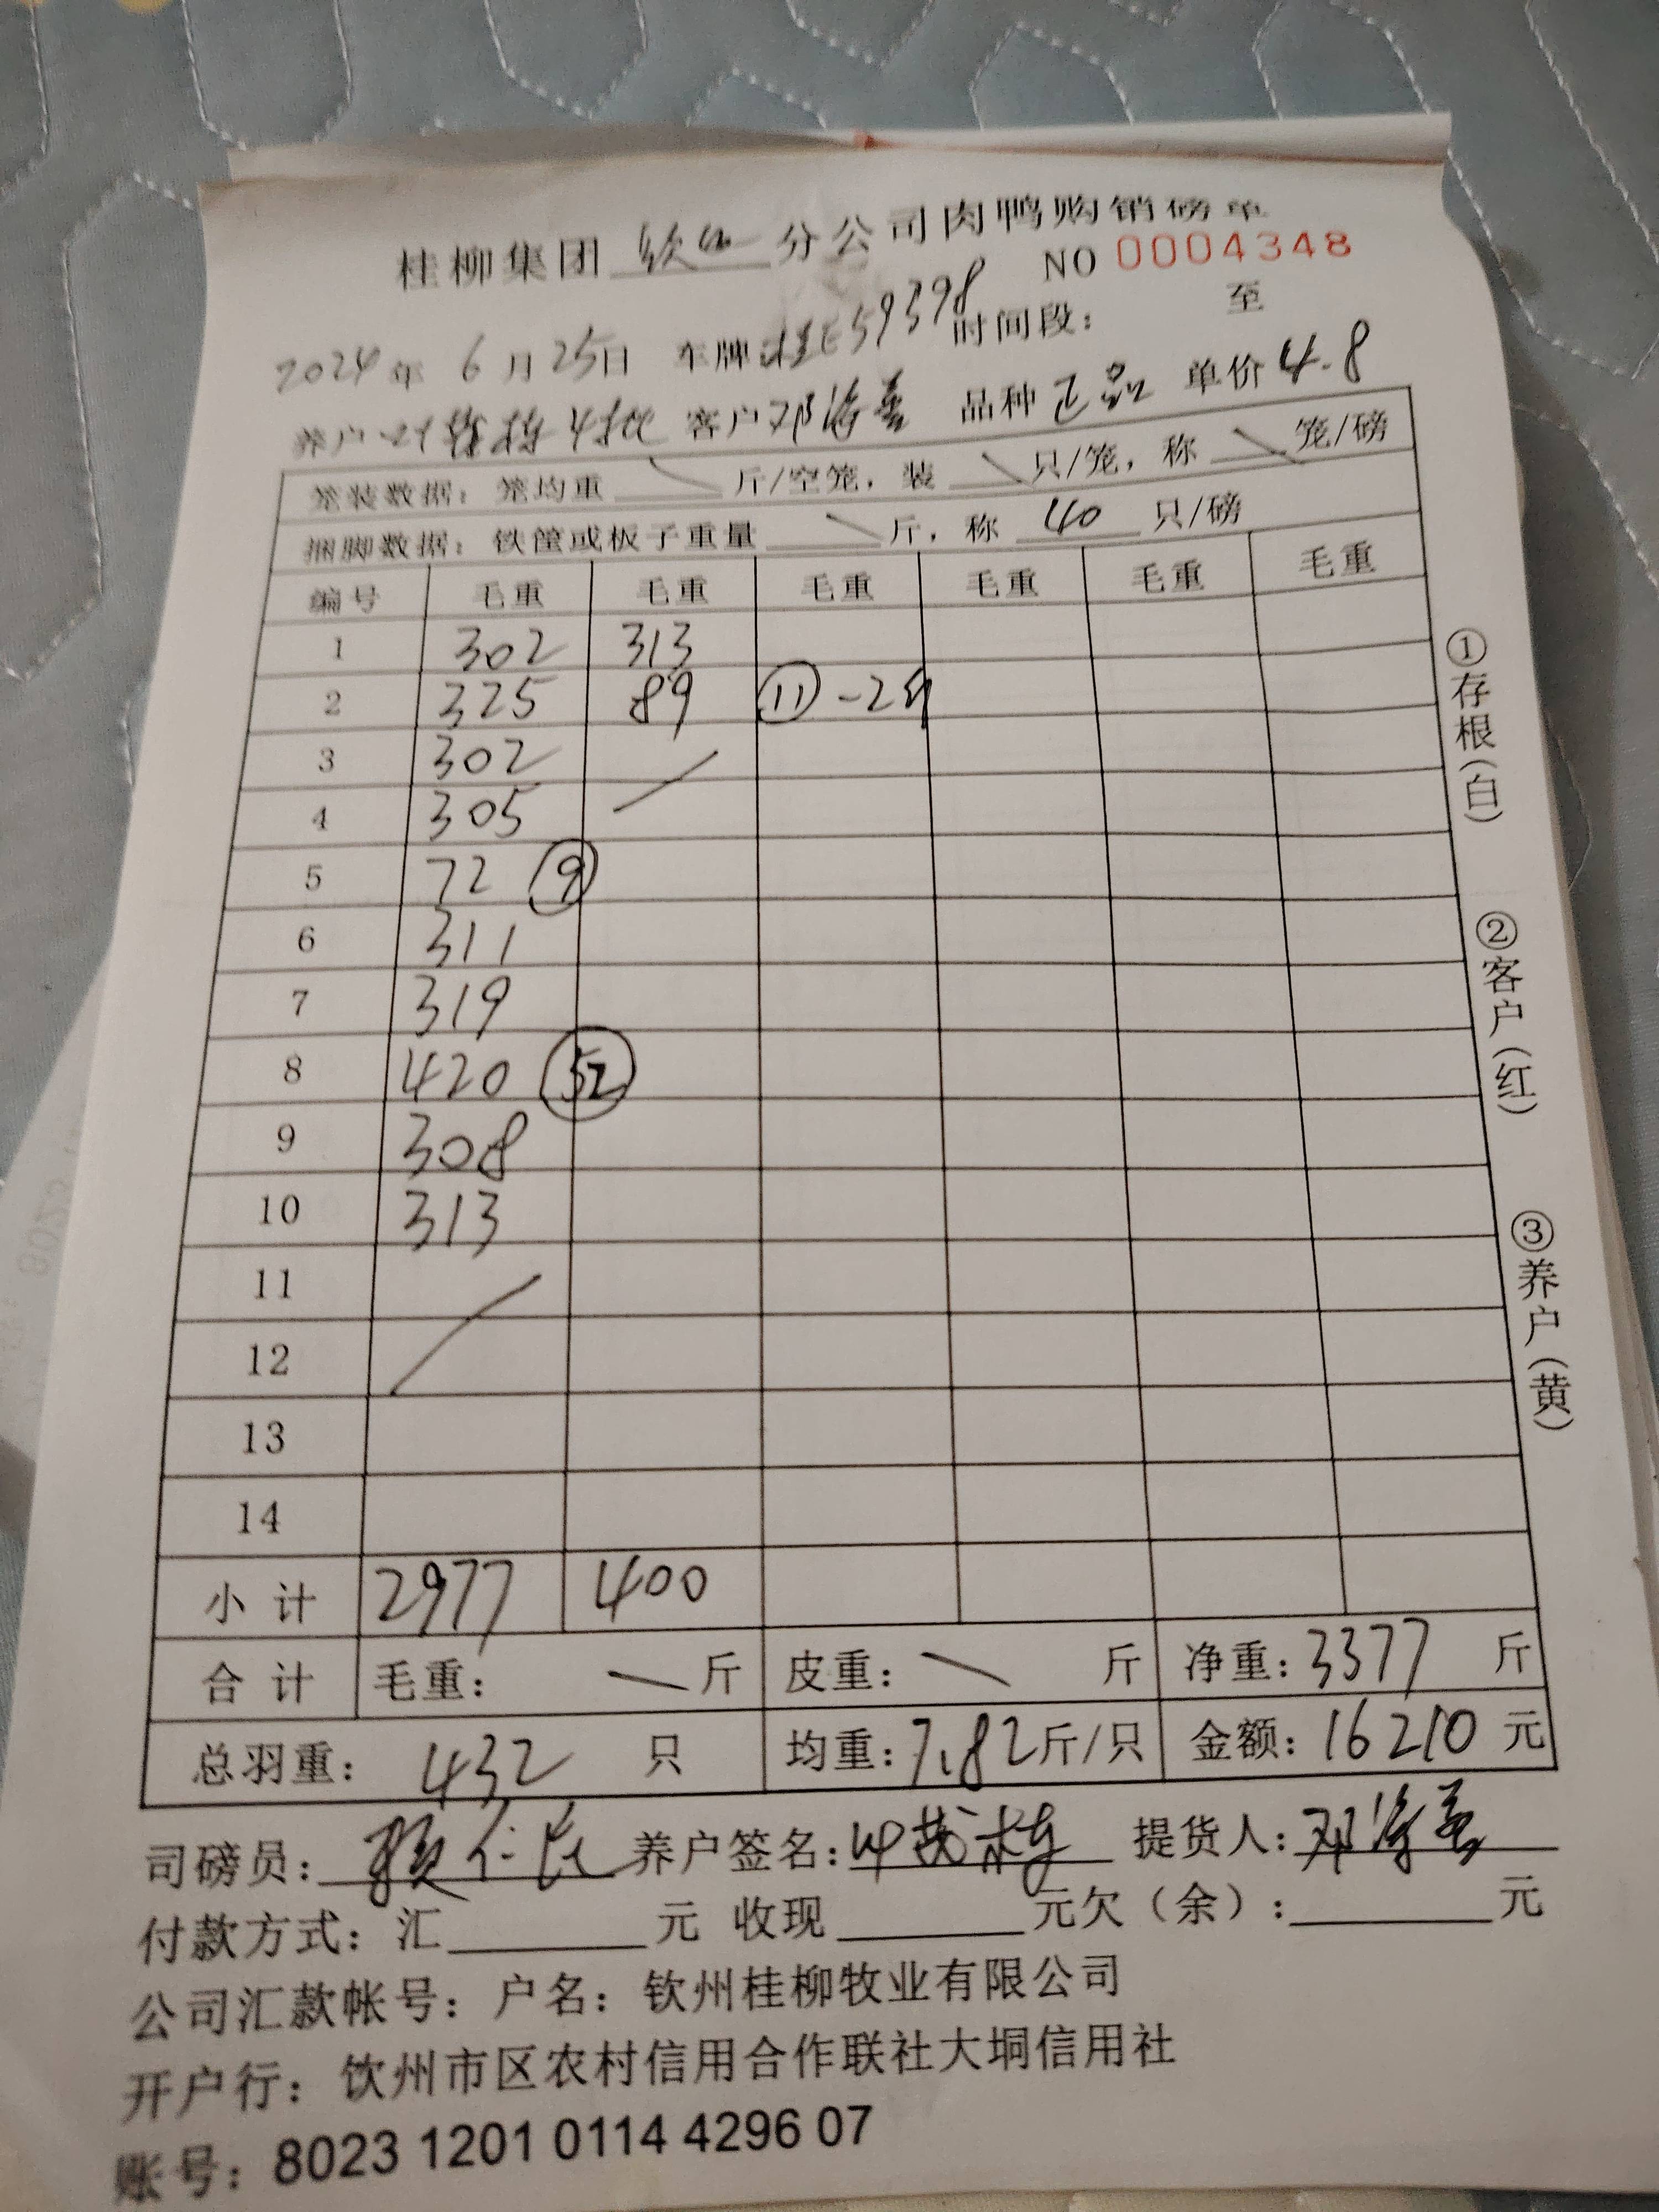 桂柳集团 钦州 分公司肉鸭购销磅单
NO 0004348
2024年 6月25日 车牌桂E59398 时间段： 至
养户 叶茂栋 4批 客户 邓海善 品种 正品 单价 4.8
笼装数据：笼均重 斤/空笼，装 只/笼，称 笼/磅
捆脚数据：铁筐或板子重量 斤，称 40 只/磅
编号 毛重 毛重 毛重 毛重 毛重 毛重
1 302 313
2 325 89 ⑪ -2只
3 302
4 305
5 72 ⑨
6 311
7 319
8 420 52
9 308
10 313
11
12
13
14
小计 2977 400
合计 毛重： 斤 皮重： 斤 净重：3377 斤
总羽重：432 只 均重：7.82斤/只 金额：16210 元
①存根(白) ②客户(红) ③养户(黄)
司磅员： 养户签名：叶茂栋 提货人：邓海善
付款方式：汇 元 收现 元欠（余）： 元
公司汇款帐号：户名：钦州桂柳牧业有限公司
开户行：钦州市区农村信用合作联社大垌信用社
账号：8023 1201 0114 4296 07